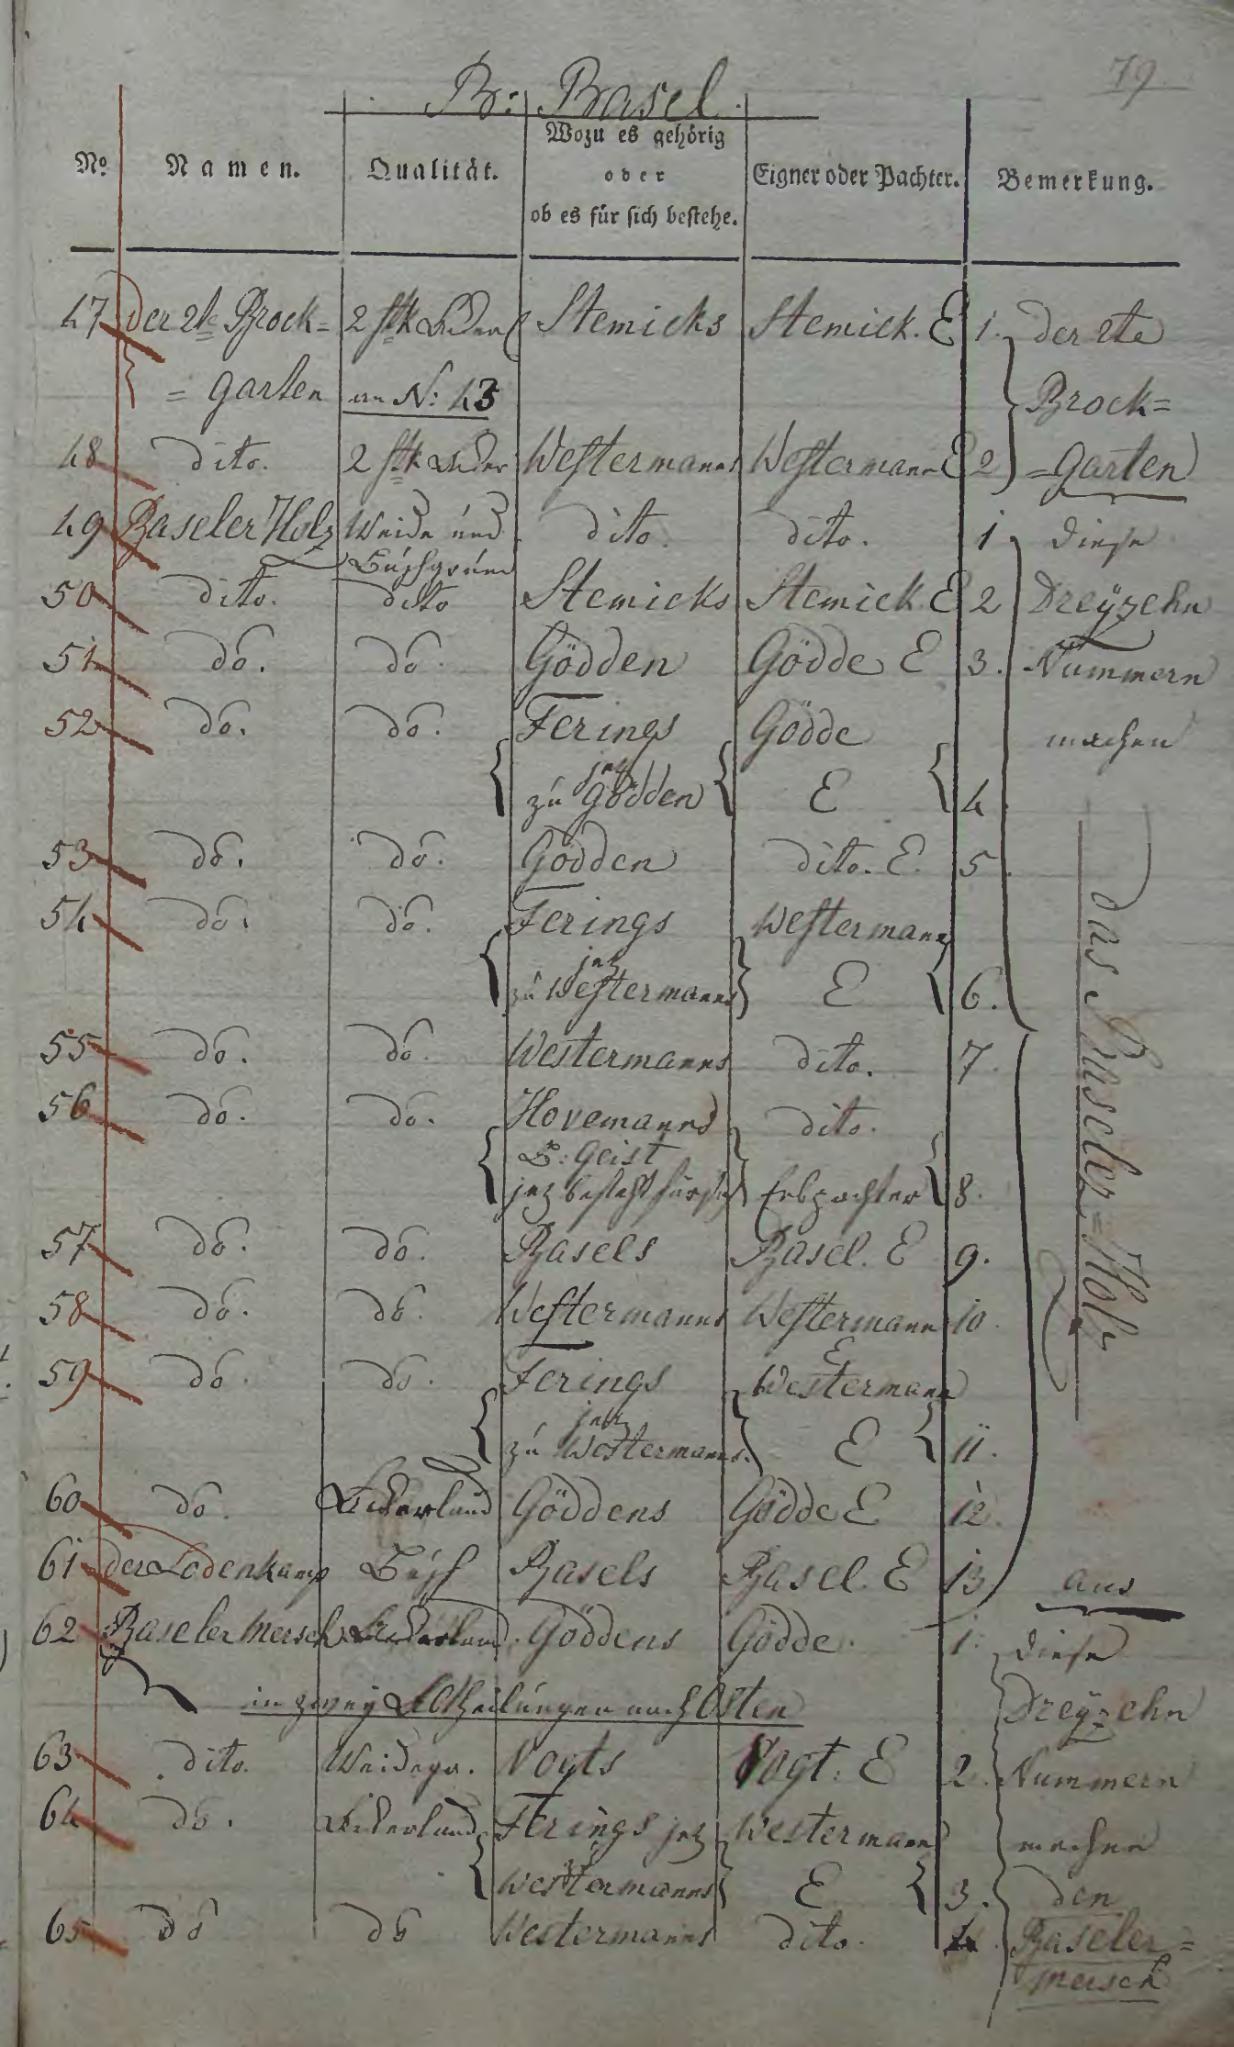 79
B: Basel
No. Namen. Qualität. Wozu es gehörig oder ob es für sich bestehe. Eigner oder Pachter. Bemerkung.
47 Der 2te Brock= 2 stk Stemicks Stemick. E 1. Der 2te
= garten an N: 43 Brock=
48 dito. 2 stk Westermanns Westermann E 2 =garten
49 Baseler Holz Weide und dito. dito. 1 Diese
Buschgrund
50 dito. dito Stemicks Stemick. E 2 Dreÿzehn
51 do. do. Gödden Gödde E 3. Nummern
52 do. do. Ferings Gödde machen
jez
zu Gödden E 4
53 do. do. Gödden dito. E. 5
54 do. do. Ferings Westermann
jez
zu Westermanns E 6.
55 do. do. Westermanns dito. 7.
56 do. do. Hovemanns dito.
H: Geist
jez besteht für sich Erbpachter 8.
57 do. do. Basels Basel. E 9.
58 do. do. Westermanns Westermann 10.
E
59 do. do. Ferings Westermann
jez
zu Westermanns. E 11.
das Baseler=Holz
60 do. Ackerland Göddens Gödde E 12.
61 der Lodenkamp Busch Basels Basel. E 13 aus
62 Baseler Mersch Ackerland. Göddens Gödde. 1. Diese
in zweÿ Abtheilungen nach Osten Dreÿzehn
63 dito. Weidegr. Vogts Vogt. E 2. Nummern
64 do. Ackerland Ferings jez Westermann machen
Westermanns E 3. den
65 do do Westermanns dito. 4. Baseler=
mersch